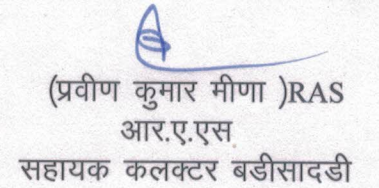 (प्रवीण कुमार मीणा )RAS
आर.ए.एस
सहायक कलक्टर बडीसादडी